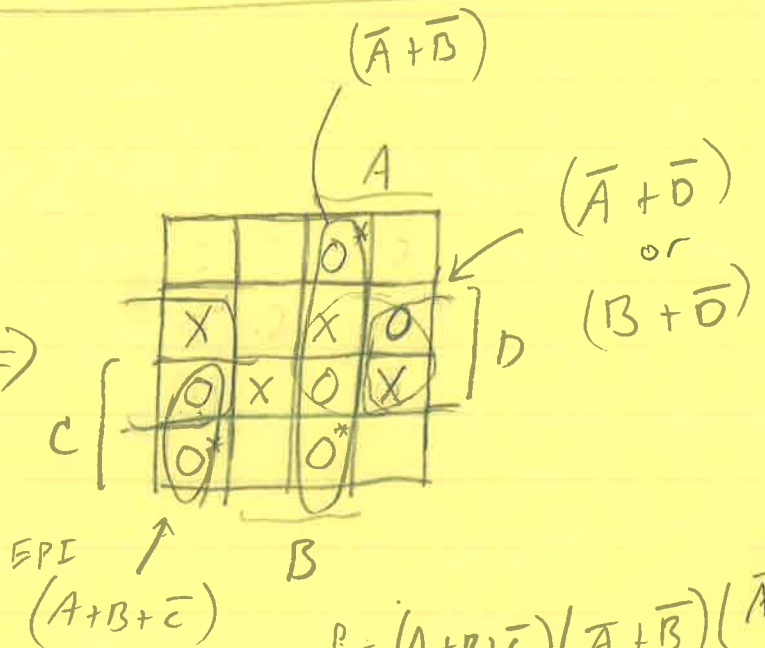 (A̅ + B̅)
A
(A̅ + D̅)
or
(B + D̅)
O*
X X O
D
C
O X O X
O* O*
EPI
B
(A+B+C̅)
(A+B+C̅)(A̅+B̅)(A̅